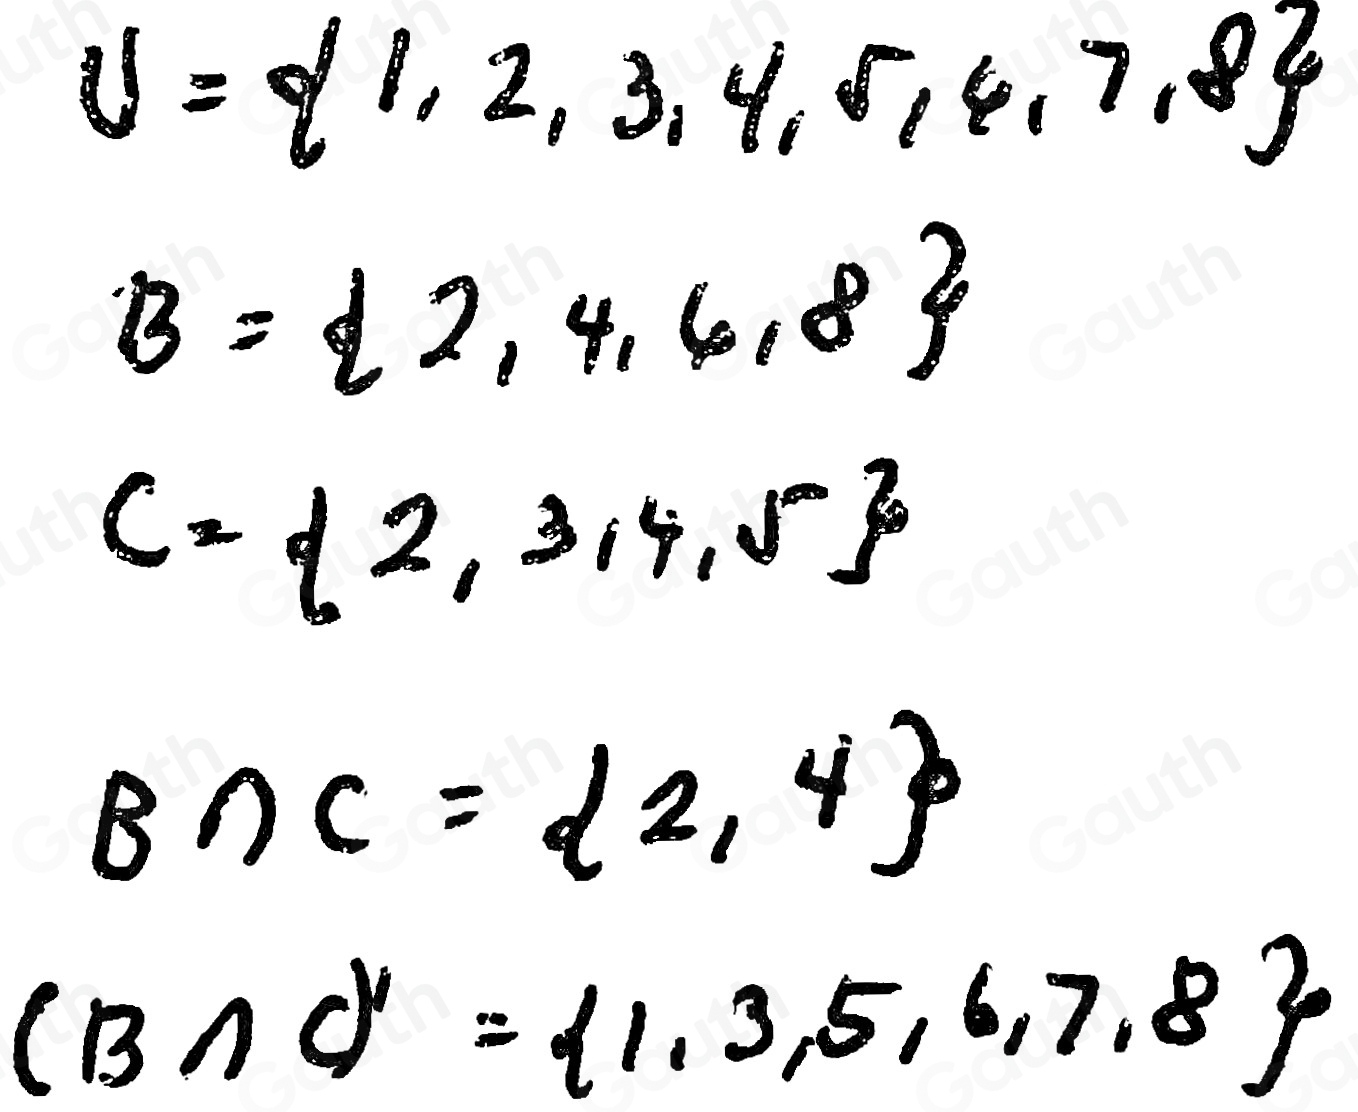 U = {1, 2, 3, 4, 5, 6, 7, 8}
B = {2, 4, 6, 8}
C = {2, 3, 4, 5}
B ∩ C = {2, 4}
(B ∩ C)' = {1, 3, 5, 6, 7, 8}